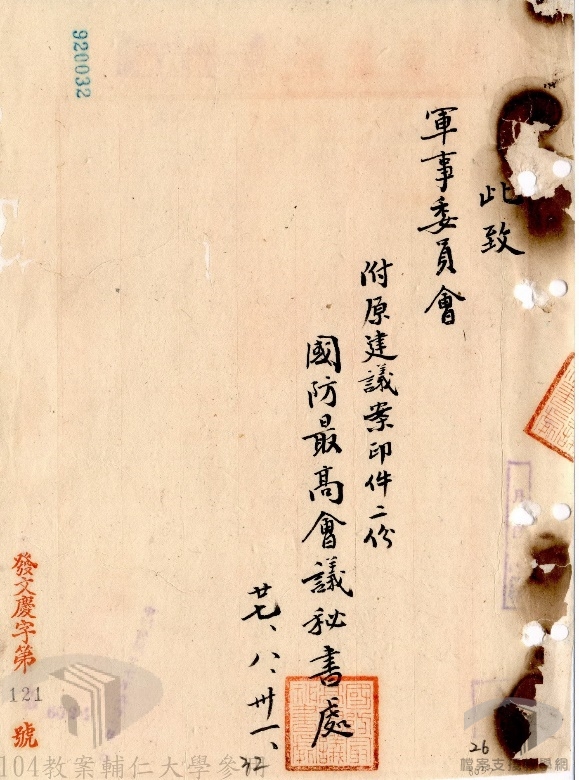 此致
軍事委員會
附原建議案印件二份
國防最高會議秘書處
廿七、八、卅一、
920032
發文慶字第
121
號
26
104教案輔仁大學參
檔案支援教學網